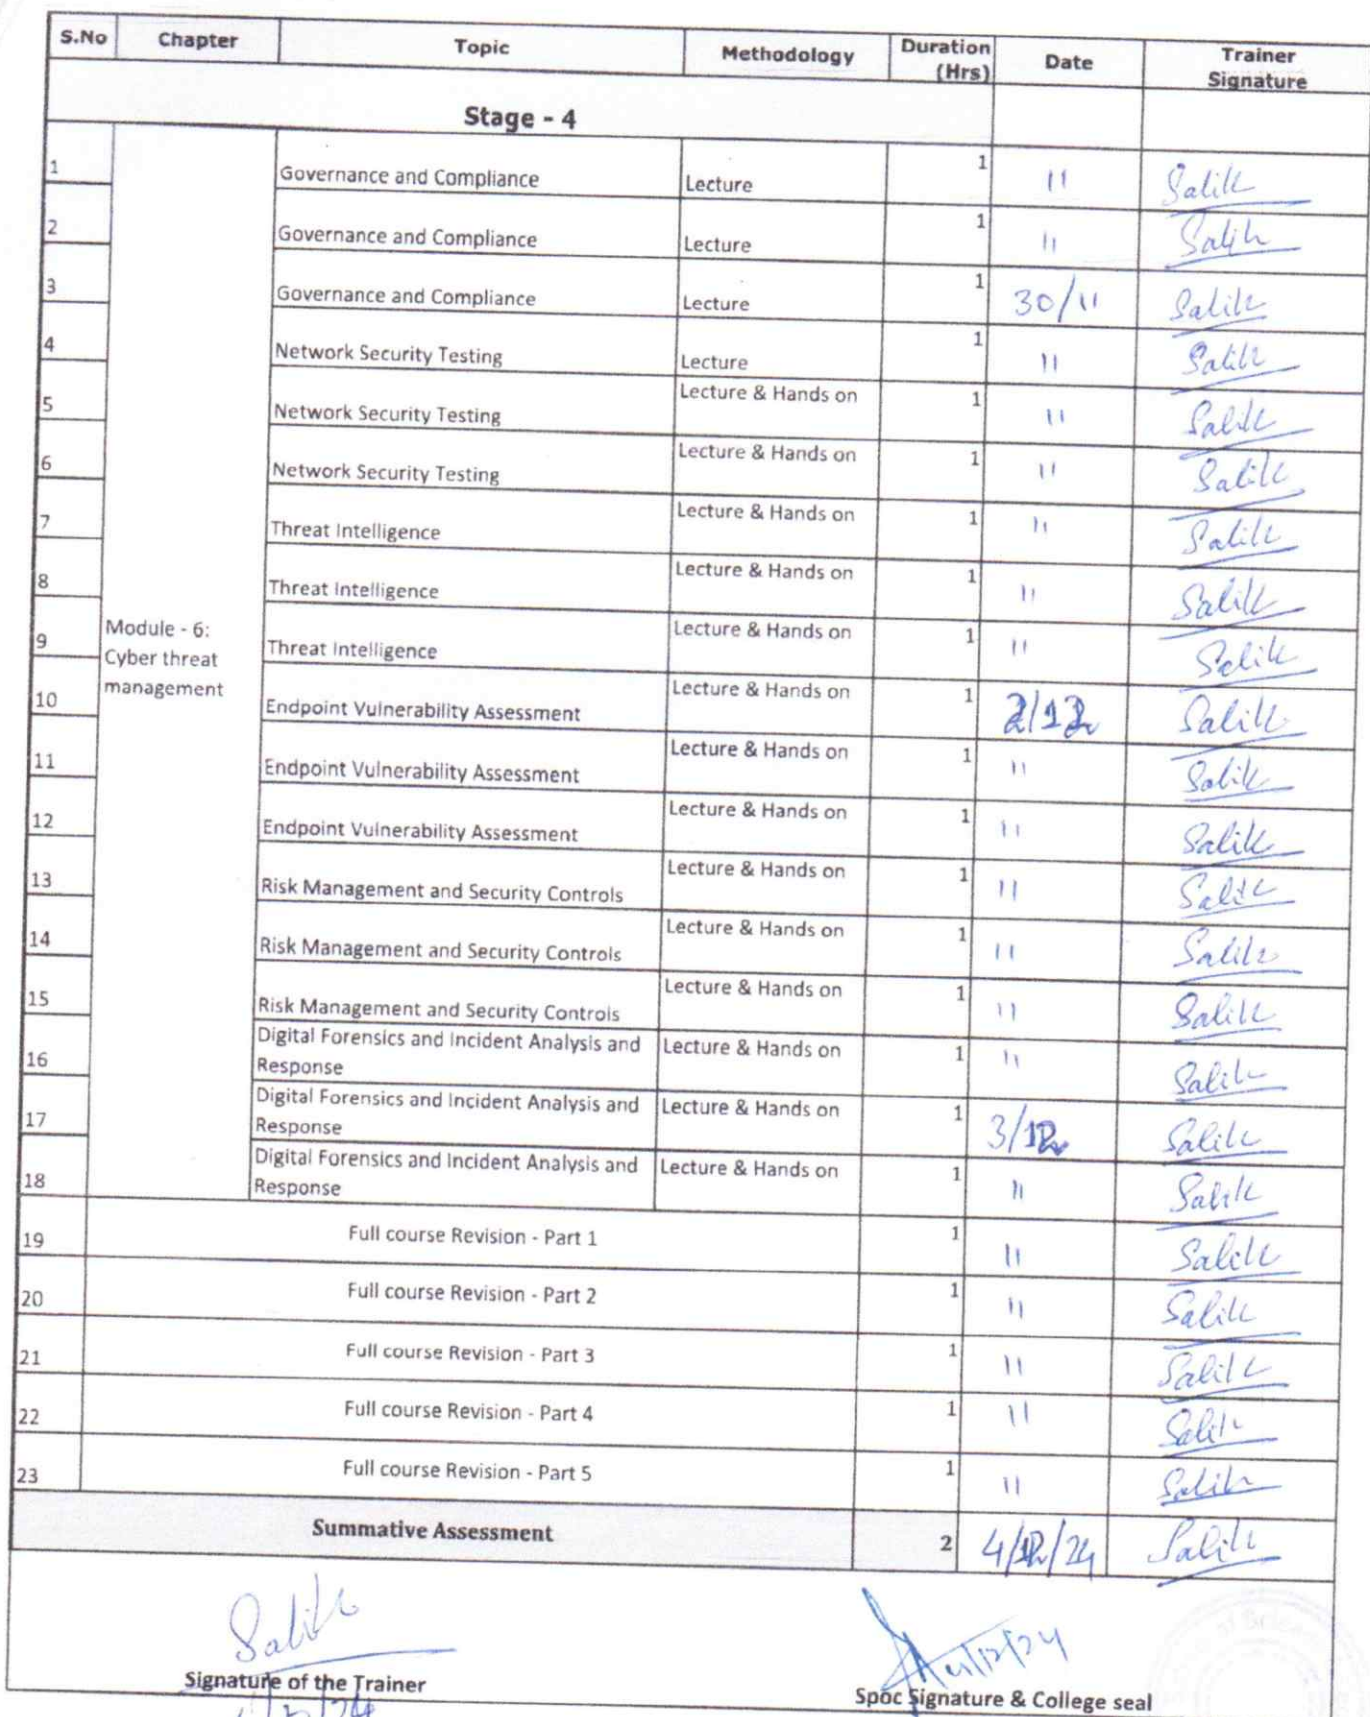 S.No Chapter Topic Methodology Duration (Hrs) Date Trainer Signature
Stage - 4
Module - 6: Cyber threat management
1 Governance and Compliance Lecture 1 11 Salik
2 Governance and Compliance Lecture 1 11 Salik
3 Governance and Compliance Lecture 1 30/11 Salik
4 Network Security Testing Lecture 1 11 Salik
5 Network Security Testing Lecture & Hands on 1 11 Salik
6 Network Security Testing Lecture & Hands on 1 11 Salik
7 Threat Intelligence Lecture & Hands on 1 11 Salik
8 Threat Intelligence Lecture & Hands on 1 11 Salik
9 Threat Intelligence Lecture & Hands on 1 11 Salik
10 Endpoint Vulnerability Assessment Lecture & Hands on 1 2/12 Salik
11 Endpoint Vulnerability Assessment Lecture & Hands on 1 11 Salik
12 Endpoint Vulnerability Assessment Lecture & Hands on 1 11 Salik
13 Risk Management and Security Controls Lecture & Hands on 1 11 Salik
14 Risk Management and Security Controls Lecture & Hands on 1 11 Salik
15 Risk Management and Security Controls Lecture & Hands on 1 11 Salik
16 Digital Forensics and Incident Analysis and Response Lecture & Hands on 1 11 Salik
17 Digital Forensics and Incident Analysis and Response Lecture & Hands on 1 3/12 Salik
18 Digital Forensics and Incident Analysis and Response Lecture & Hands on 1 11 Salik
19 Full course Revision - Part 1 1 11 Salik
20 Full course Revision - Part 2 1 11 Salik
21 Full course Revision - Part 3 1 11 Salik
22 Full course Revision - Part 4 1 11 Salik
23 Full course Revision - Part 5 1 11 Salik
Summative Assessment 2 4/12/24 Salik
Salik
Signature of the Trainer
Spoc Signature & College seal